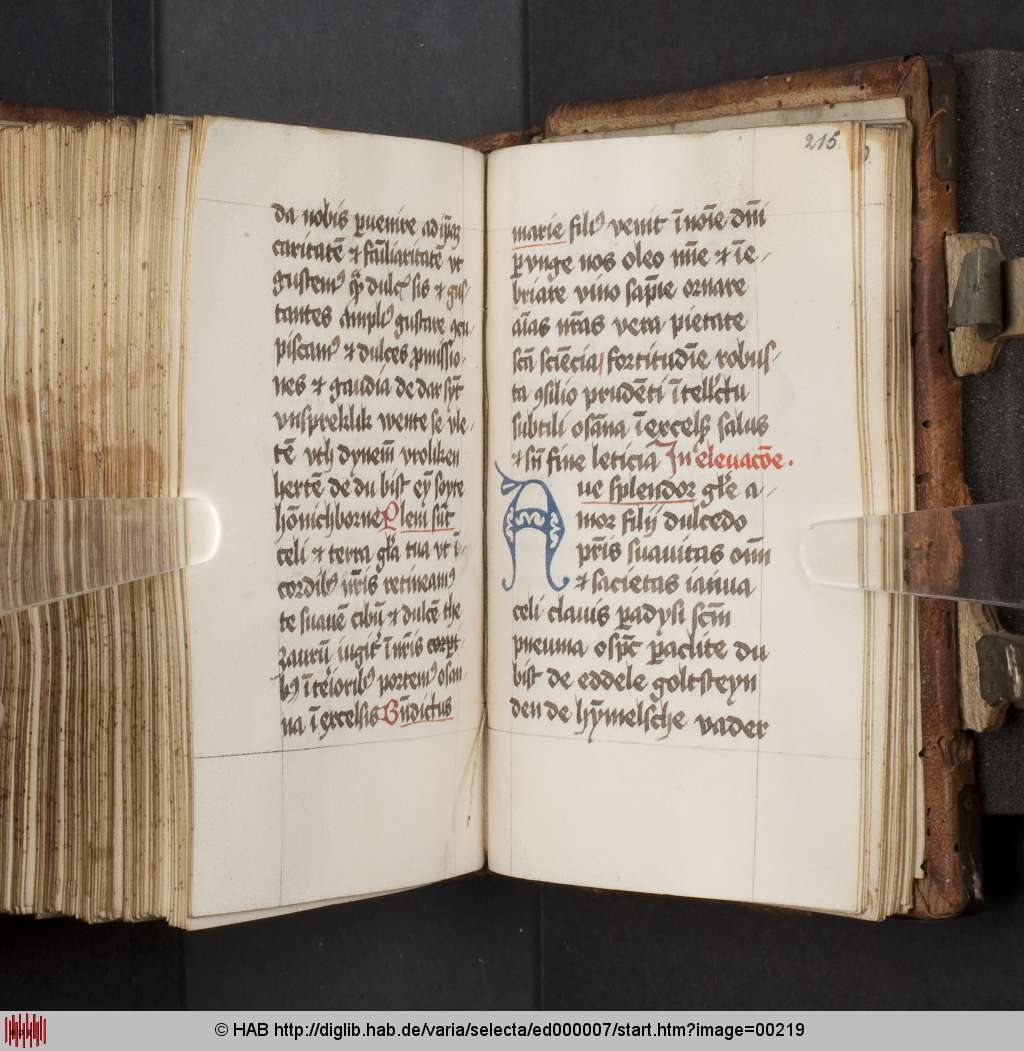 da nobis ꝑuenire ad ip̄aꝫ
caritatē ⁊ fāiliaritatē vt
gustemꝰ ꝙ̄ dulcꝭ sis ⁊ gus
tantes ampliꝰ gustare ꝯcu
piscamꝰ ⁊ dulces ꝓmissio-
nes ⁊ gaudia de dar sy̅t
vnspreklik wente se vle-
tē vth dynem̄ vroliken
hertē de du bist ey̅ soyte
hōnichborne Pleni sūt
celi ⁊ terra gl̄a tua vt ī
cordibꝰ nr̄is retineamꝰ
te suauē cibū ⁊ dulcē the
zaurū iugit᷑ ī nr̄is corꝑi
bꝰ īt᷑ioribꝰ portemꝰ osan
na ī excelsis Bn̄dictus
215
marie filiꝰ venit ī noīe dn̄i
ꝑvnge nos oleo mīe ⁊ īe-
briare vino sap̄ie ornare
aīas nr̄as vera pietate
scā sciēcia fortitudīe robus-
ta ꝯsilio prudēti ītell̄ctu
subtili osāna ī excelsꝭ salus
⁊ sn̄ fine leticia In eleuacōe.
Aue splendor gl̄e a-
mor filij dulcedo
pr̄is suauitas om̄
⁊ sacietas ianua
celi clauis ꝑadysi scm̄
pneuma osp̄c ꝑaclite du
bist de eddele goltsteyn
den de hy̅melsche vader
© HAB http://diglib.hab.de/varia/selecta/ed000007/start.htm?image=00219